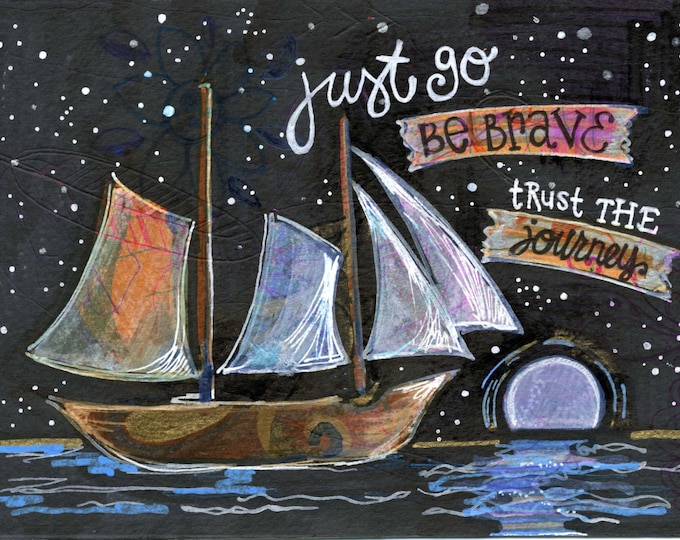 just go
BE BRAVE
tRust THE
journey